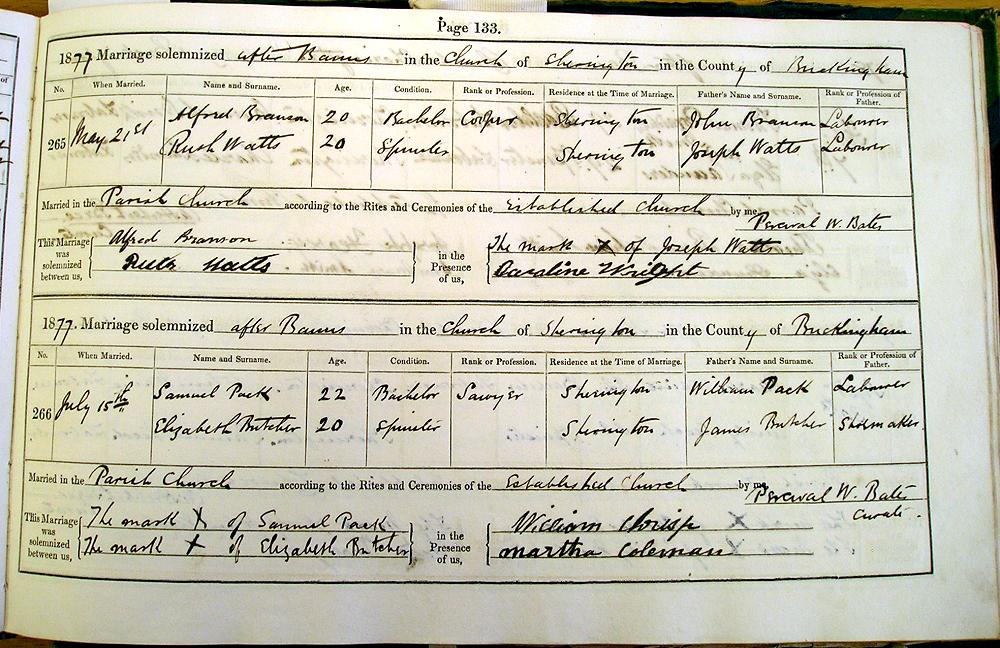 Page 133.
1877 Marriage solemnized after Banns in the Church of Sherington in the County of Buckingham
No. When Married. Name and Surname. Age. Condition. Rank or Profession. Residence at the Time of Marriage. Father's Name and Surname. Rank or Profession of Father.
265 May 21st Alfred Branson 20 Bachelor Cooper Sherington John Branson Labourer
Ruth Watts 20 Spinster Sherington Joseph Watts Labourer
Married in the Parish Church according to the Rites and Ceremonies of the Established Church by me, Percival W. Bates
This Marriage was solemnized between us, Alfred Branson in the Presence of us, The mark X of Joseph Watts
Ruth Watts Caroline Wright
1877. Marriage solemnized after Banns in the Church of Sherington in the County of Buckingham
No. When Married. Name and Surname. Age. Condition. Rank or Profession. Residence at the Time of Marriage. Father's Name and Surname. Rank or Profession of Father.
266 July 15th Samuel Pack 22 Bachelor Sawyer Sherington William Pack Labourer
Elizabeth Butcher 20 Spinster Sherington James Butcher Shoemaker.
Married in the Parish Church according to the Rites and Ceremonies of the Established Church by me, Percival W. Bates
Curate.
This Marriage was solemnized between us, The mark X of Samuel Pack in the Presence of us, William
The mark X of Elizabeth Butcher Martha Coleman